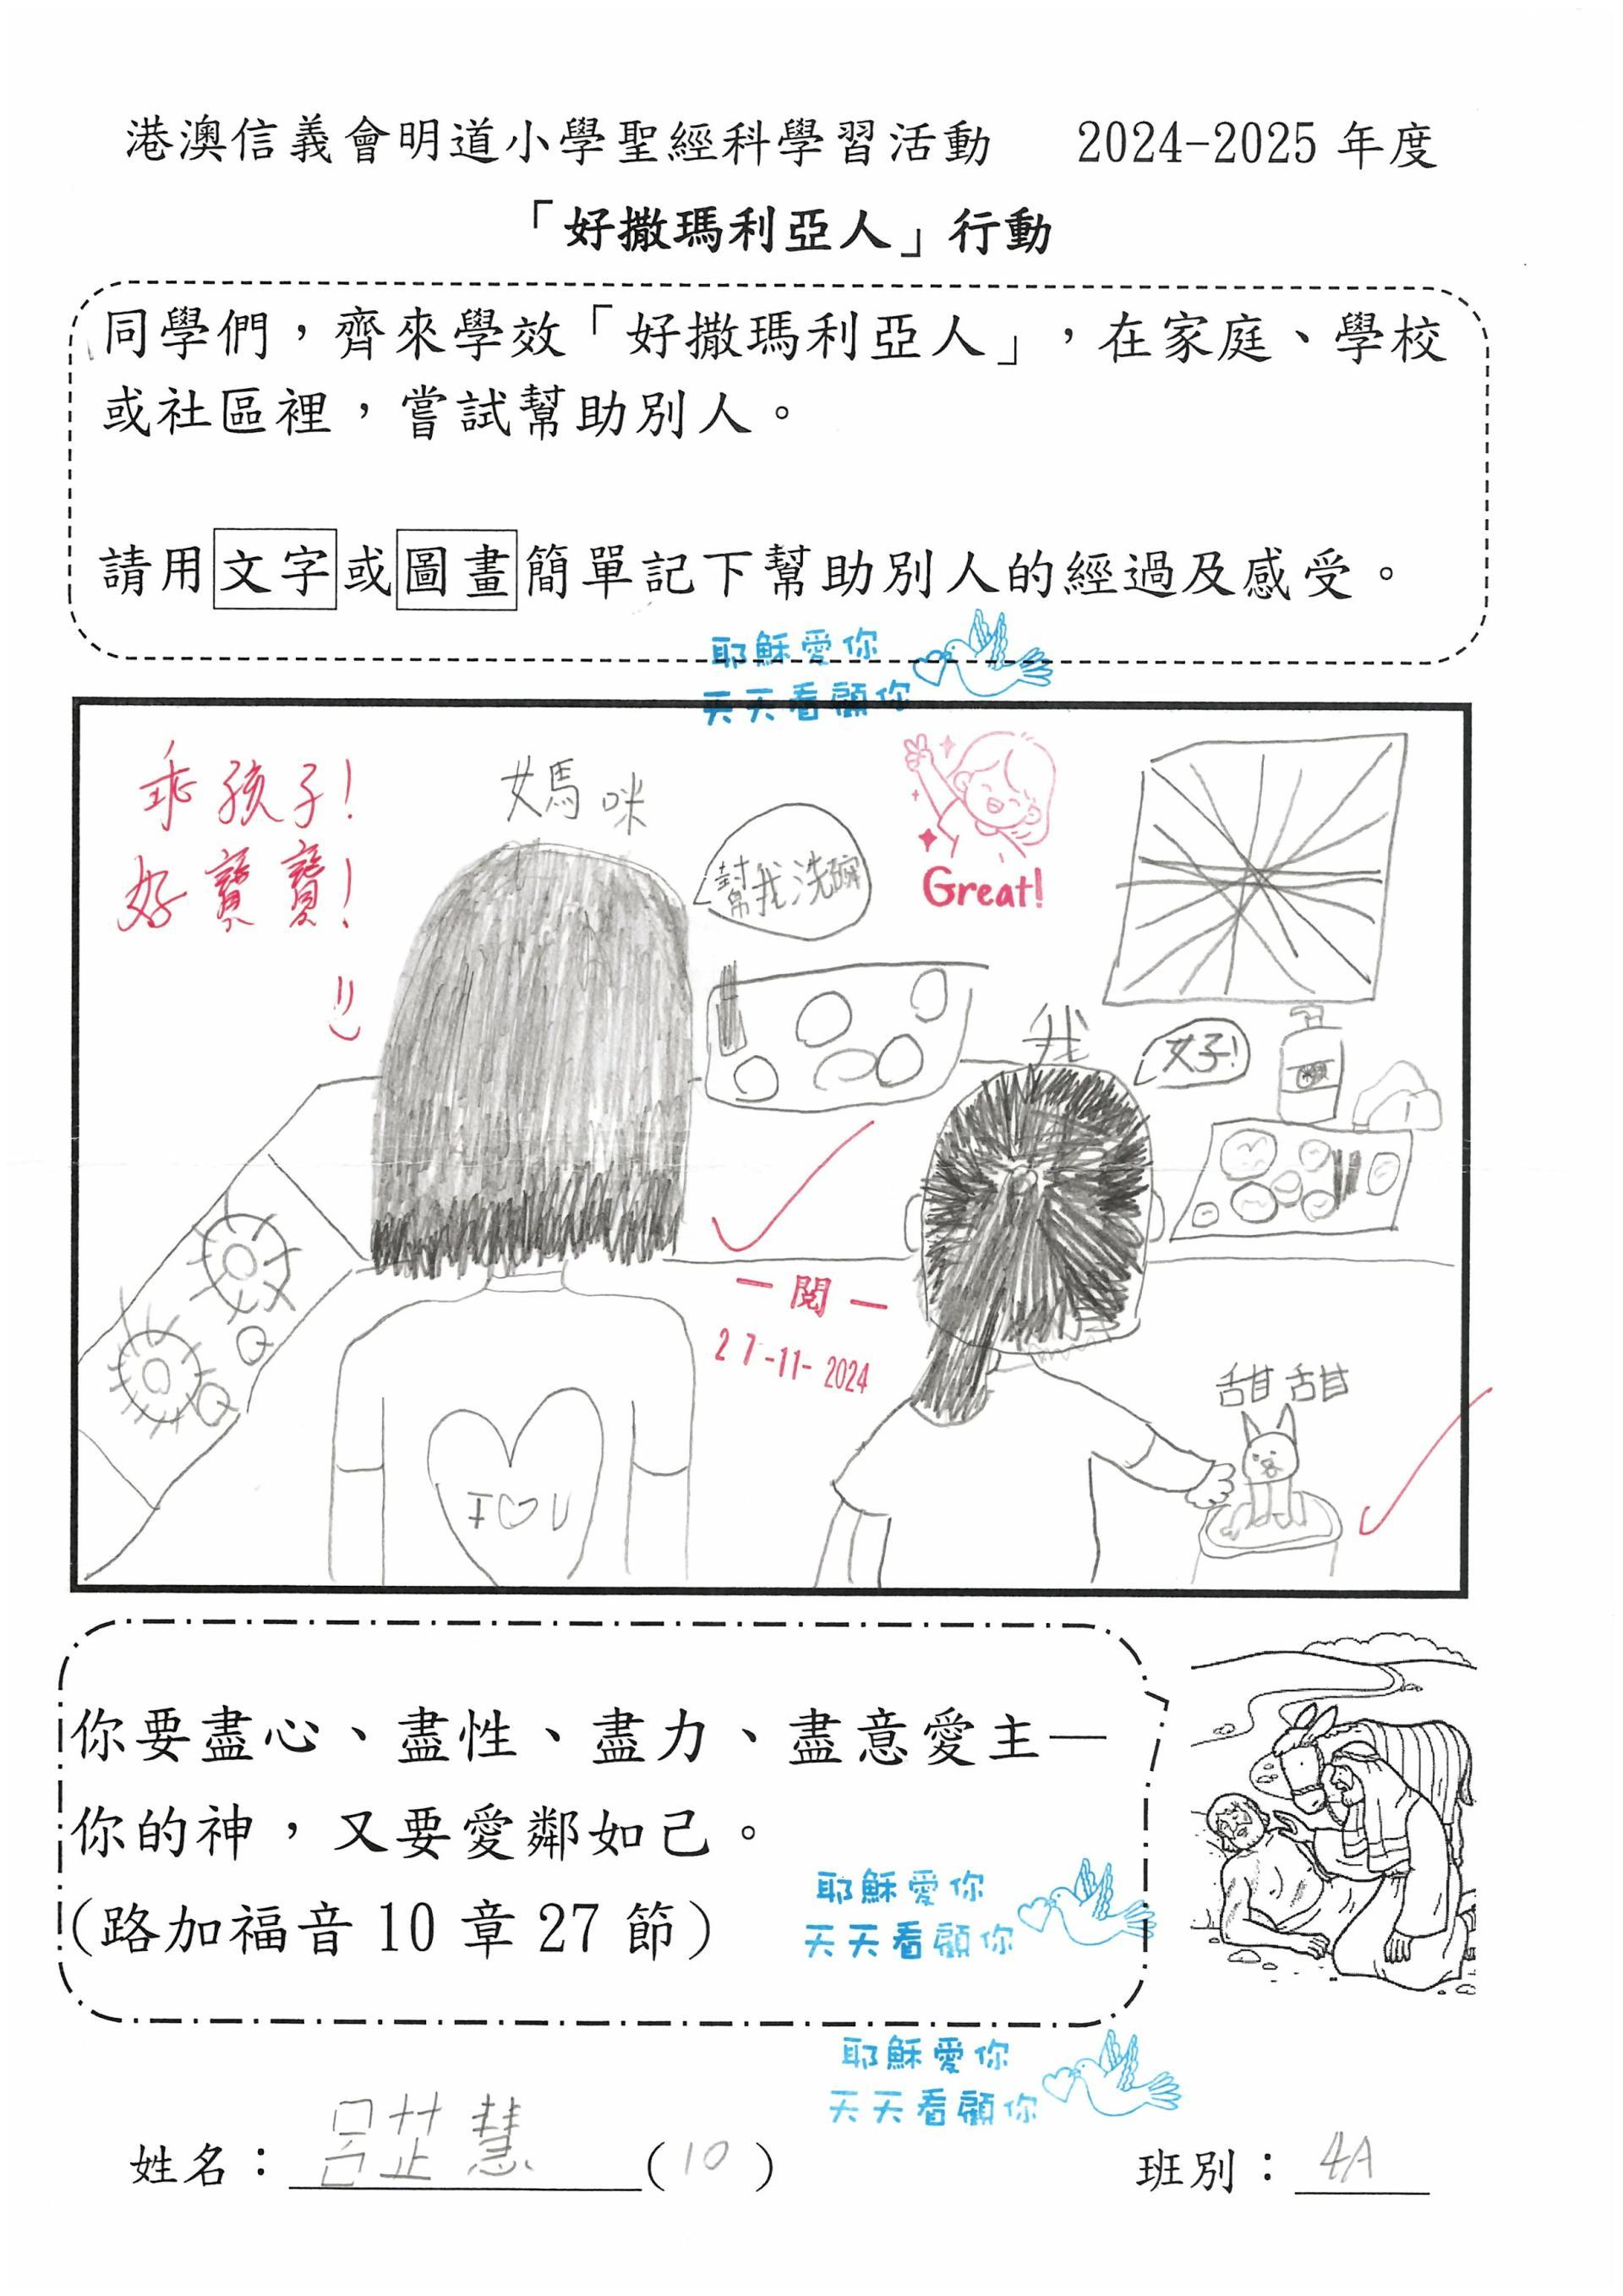 港澳信義會明道小學聖經科學習活動 2024-2025 年度
「好撒瑪利亞人」行動
同學們，齊來學效「好撒瑪利亞人」，在家庭、學校
或社區裡，嘗試幫助別人。
請用文字或圖畫簡單記下幫助別人的經過及感受。
耶穌愛你
天天看顧你
乖孩子！
好寶寶！
媽咪
幫我洗碗
Great!
我
好!
一閱一
27-11-2024
甜甜
I♡U
你要盡心、盡性、盡力、盡意愛主—
你的神，又要愛鄰如己。
(路加福音 10 章 27 節)
耶穌愛你
天天看顧你
耶穌愛你
天天看顧你
姓名：呂芷慧(10) 班別：4A